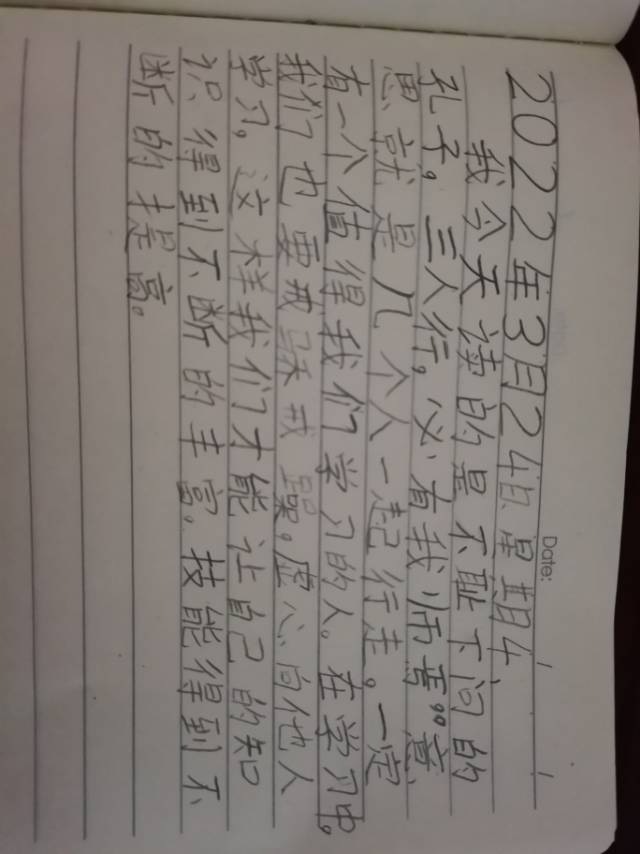 Date:
2022年3月24日星期4
我今天读的是不耻下问的
孔子。三人行,必有我师焉。意
思就是几个人一起行走。一定
有一个值得我们学习的人。在学习中。
我们也要戒骄戒躁。虚心向他人
学习。这样我们才能让自己的知
识得到不断的丰富。技能得到不
断的提高。